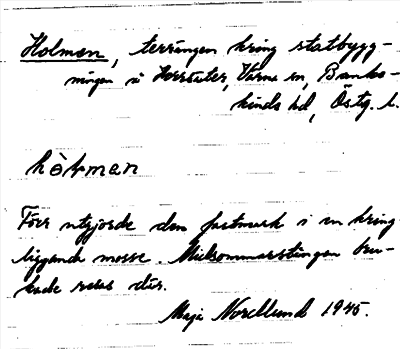 Holmen, terrängen kring statbygg-
ningen i Horrsäter, Värna sn, Banke-
kinds hd, Östg. l.
hòlman
Förr utgjorde den fastmark i en kring-
liggande mosse. Midsommarstången bru-
kade resas där.
Maja Nordlund 1945.